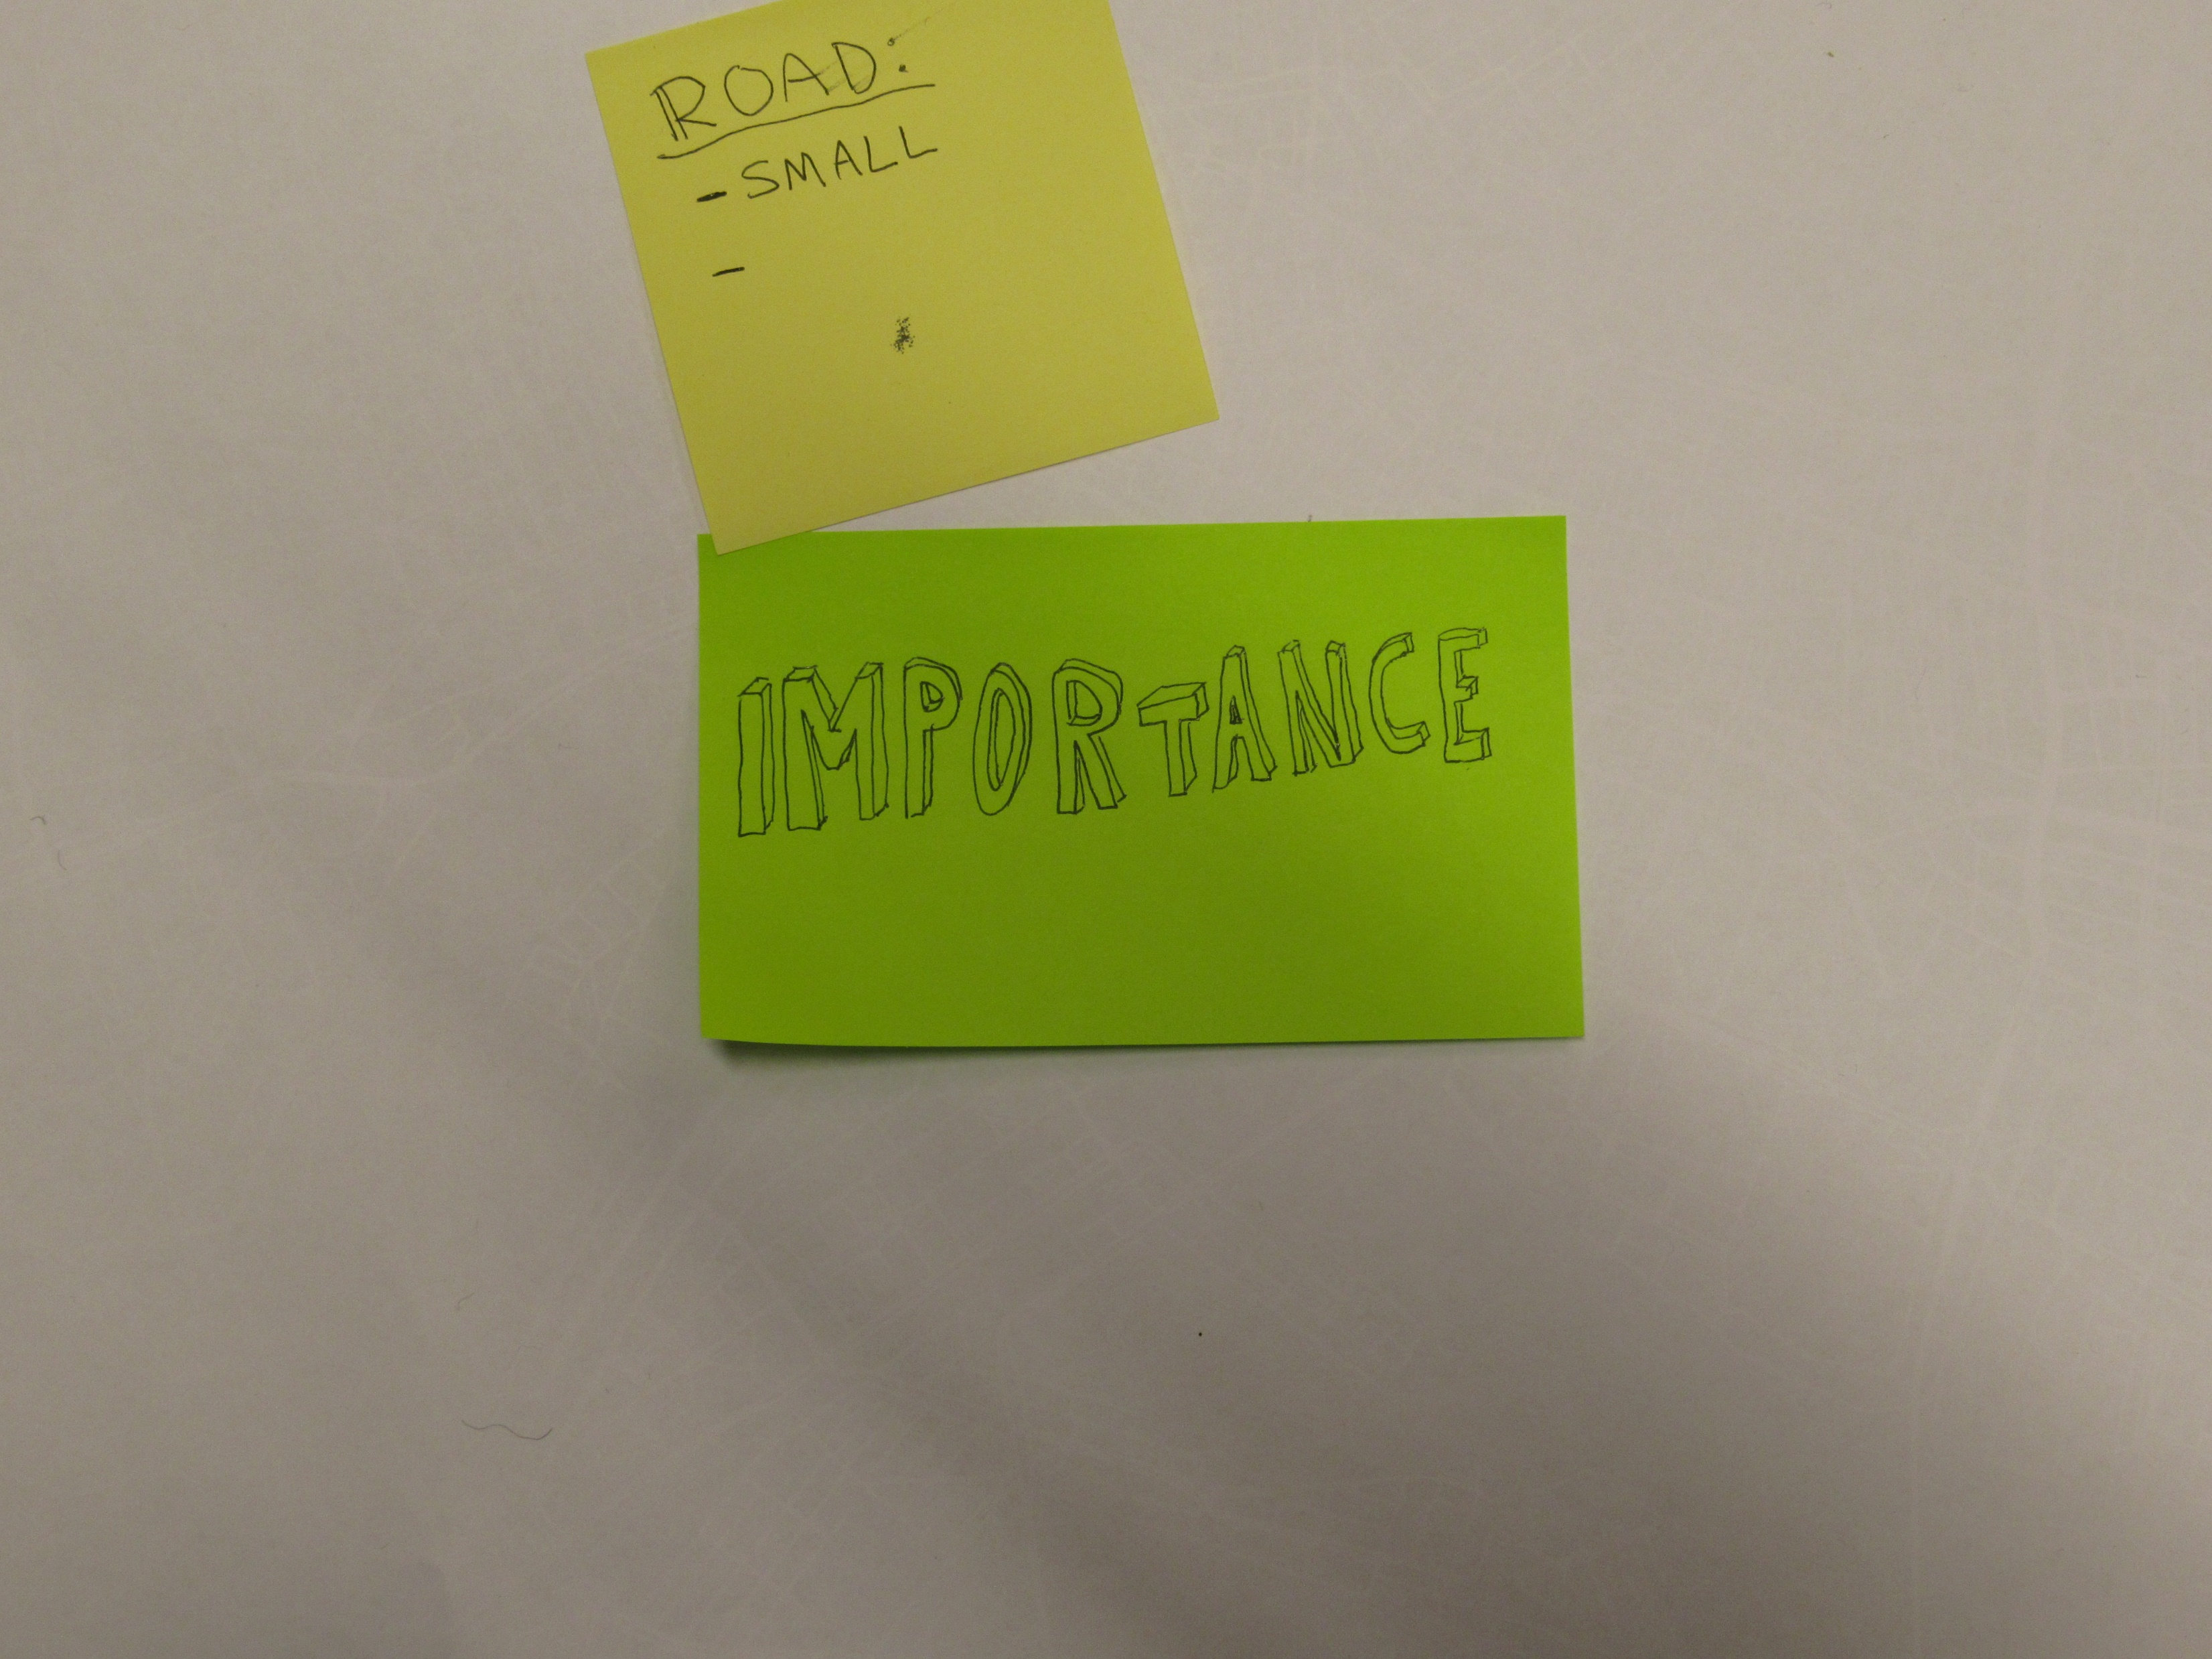 ROAD:
- SMALL
-
IMPORTANCE